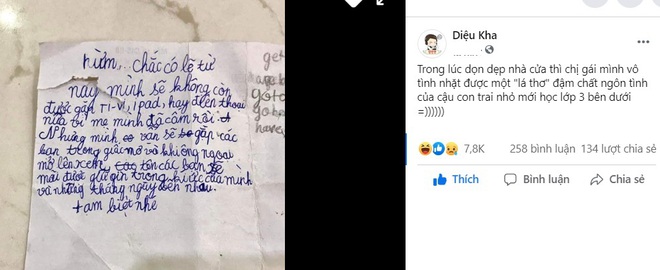 hừm, chắc có lẽ từ
nay mình sẽ không còn
được gặp TI-VI, ipad, hay điện thoai
nữa vì mẹ mình đã cấm rồi.
Nhưng mình vẫn sẽ gặp các
bạn trong giấc mơ và khi ông ngoại
mở lên xem, tôn các bạn sẽ
mãi được giữ gìn trong kí ức của mình
và những tháng ngày bên nhau.
tam biệt nhé
get
goto
go to
have
Diệu Kha
Trong lúc dọn dẹp nhà cửa thì chị gái mình vô
tình nhặt được một "lá thơ" đậm chất ngôn tình
của cậu con trai nhỏ mới học lớp 3 bên dưới
=))))))
7,8K 258 bình luận 134 lượt chia sẻ
Thích Bình luận Chia sẻ